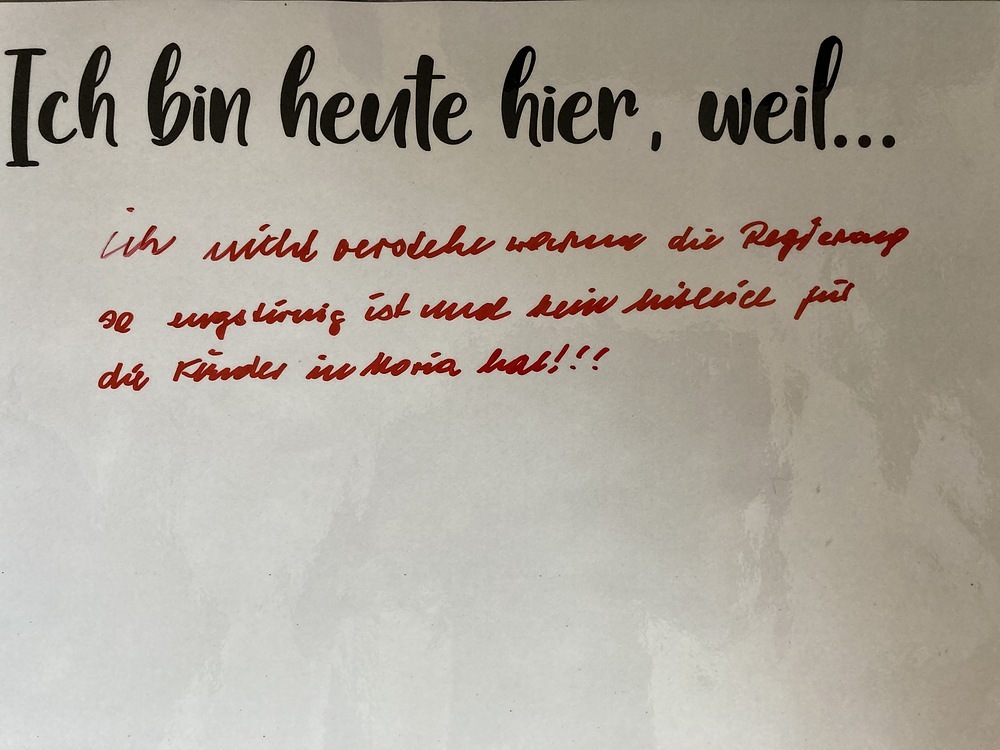 Ich bin heute hier, weil...
ich nicht verstehe warum die Regierung
so engstirnig ist und kein Mitleid für
die Kinder in Moria hat!!!